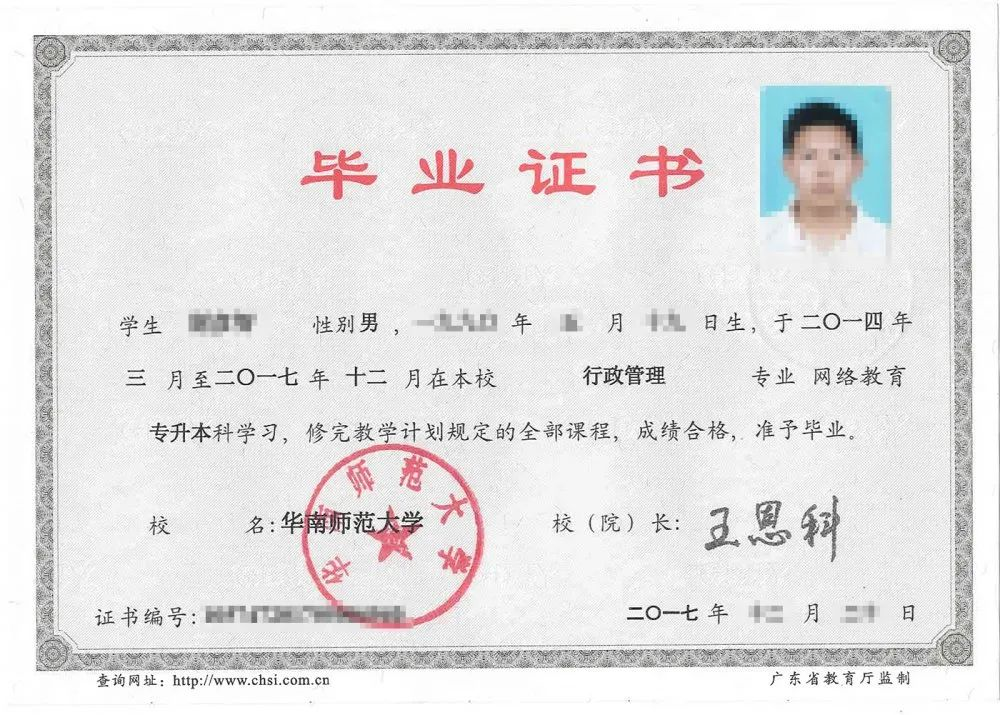 毕业证书
学生 性别 男 , 年 月 日生, 于 二〇一四 年
三 月至 二〇一七 年 十二 月在本校 行政管理 专业 网络教育
专升本科学习, 修完教学计划规定的全部课程, 成绩合格, 准予毕业。
华南师范大学
校 名: 华南师范大学 校（院）长: 王恩科
证书编号: 二〇一七 年 月 日
查询网址: http://www.chsi.com.cn 广东省教育厅监制